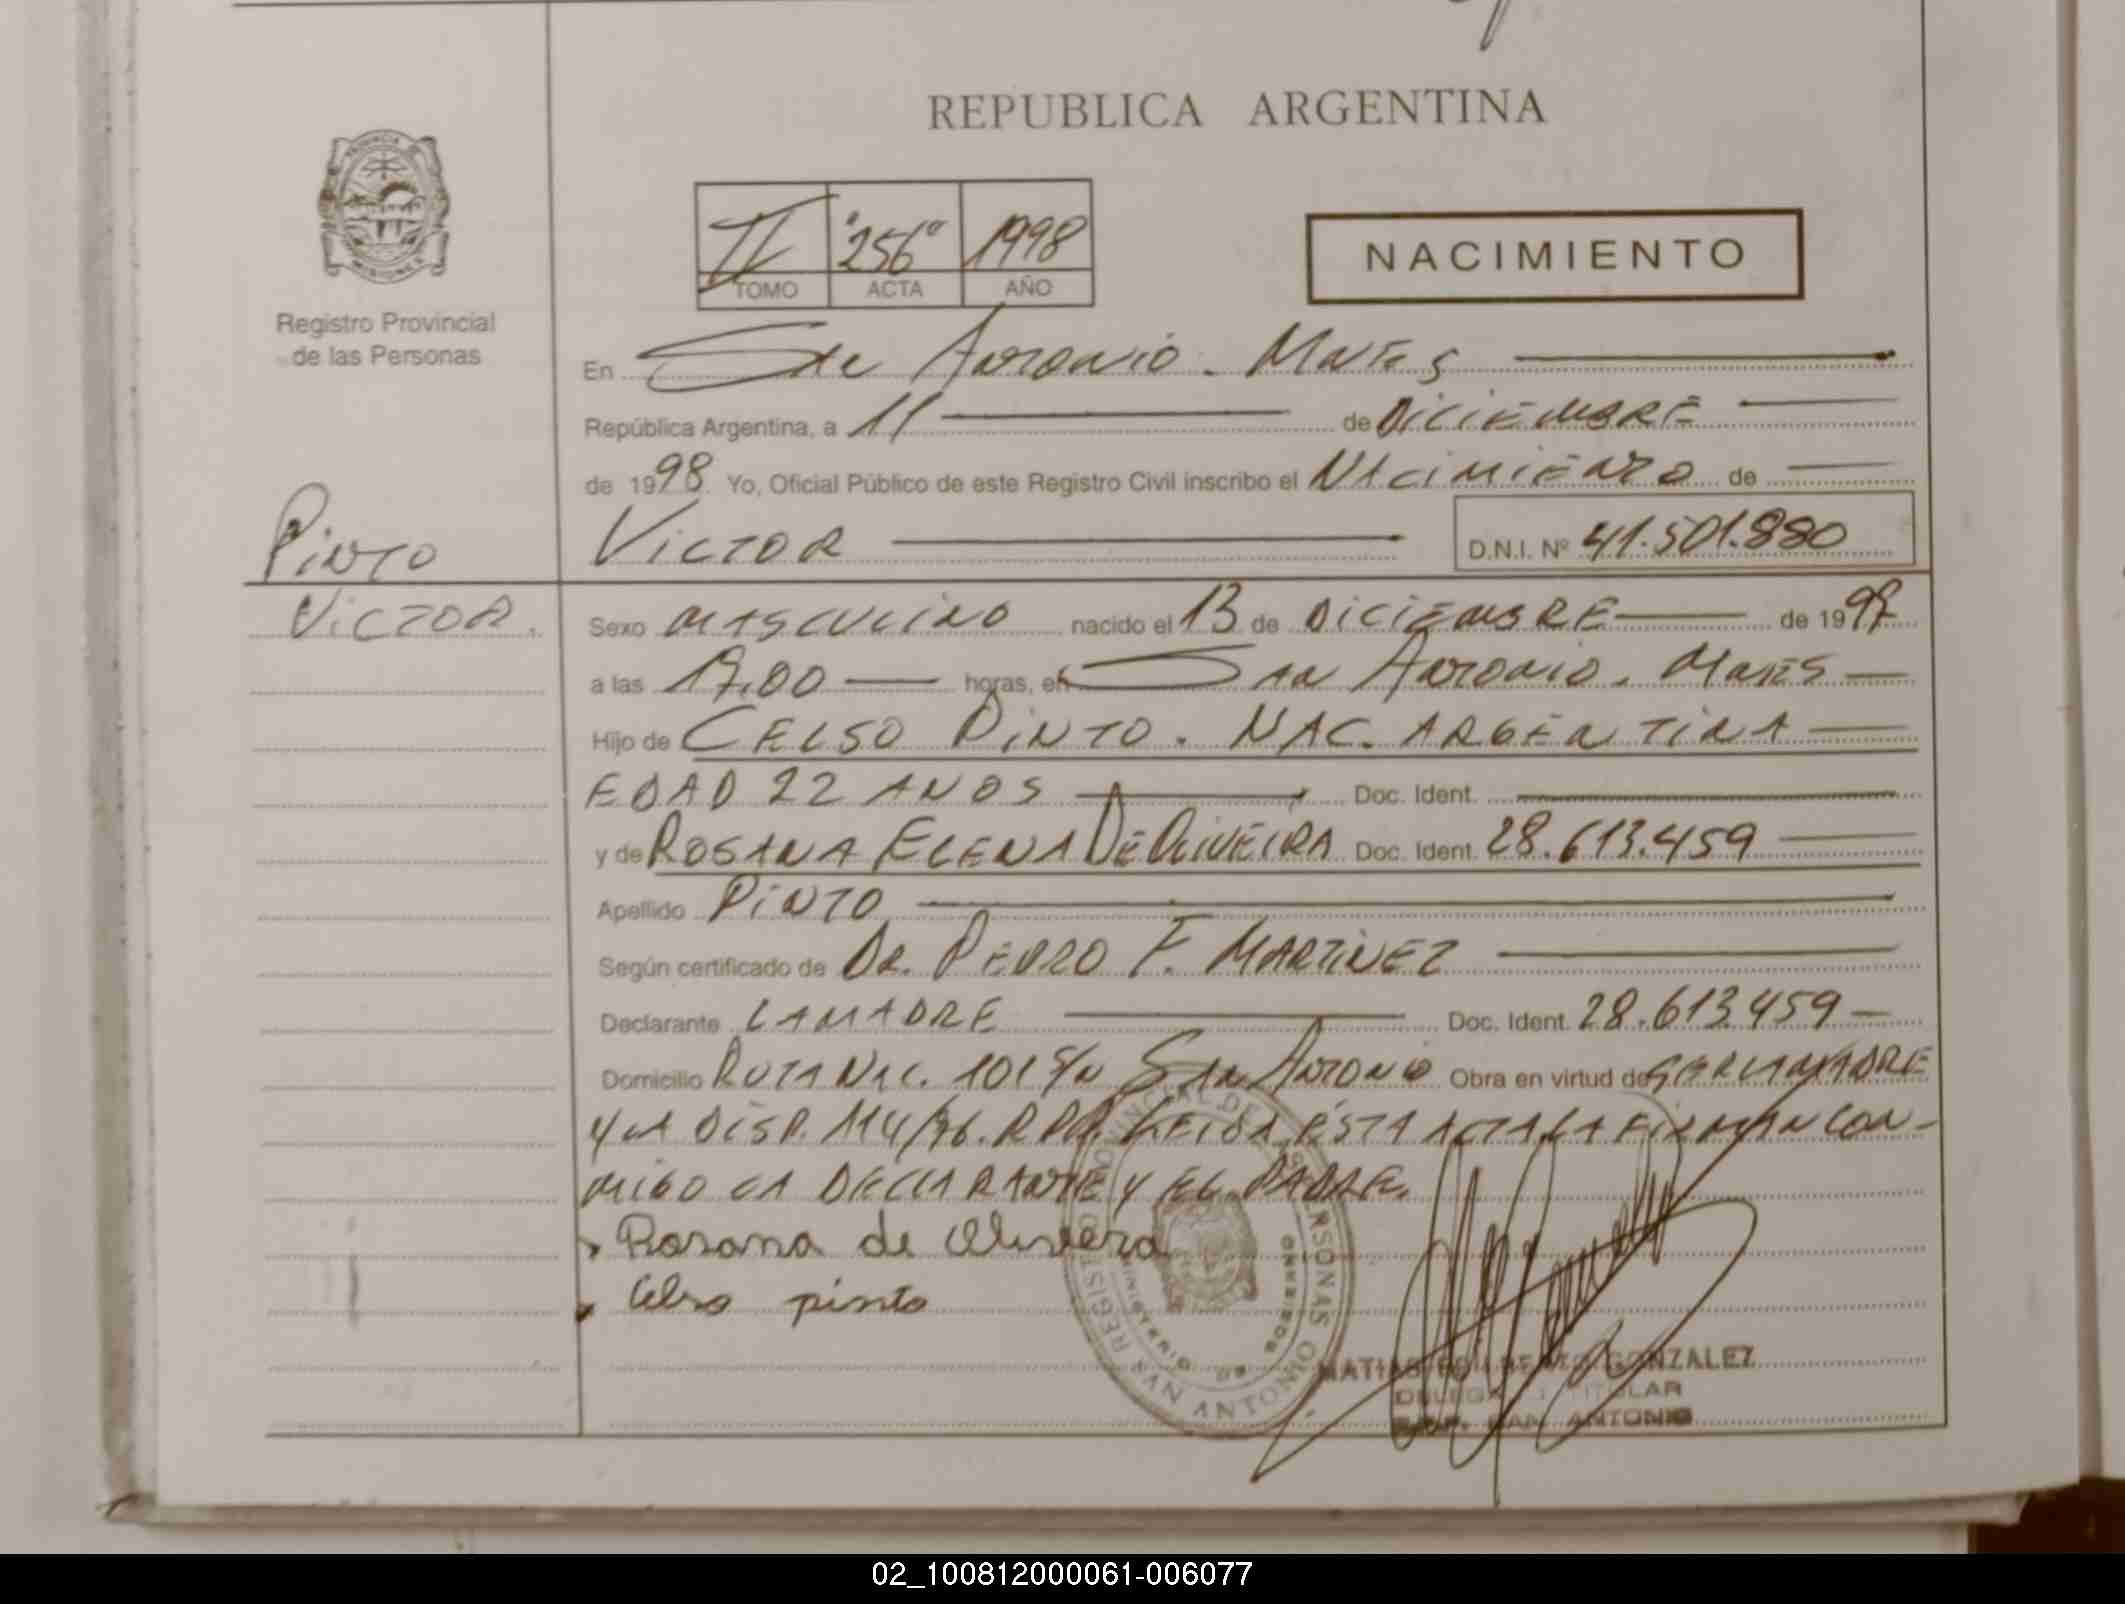 REPUBLICA ARGENTINA
PROVINCIA DE
MISIONES
Registro Provincial
de las Personas
II "256" 1998
TOMO ACTA AÑO
NACIMIENTO
En San Antonio. Mnes
República Argentina, a 11 de DICIEMBRE
de 1998 Yo, Oficial Público de este Registro Civil inscribo el NACIMIENTO de
PINTO
VICTOR.
VICTOR D.N.I. Nº 41.501.880
Sexo MASCULINO nacido el 13 de DICIEMBRE de 1997
a las 17,00 horas, en San Antonio. Mnes
Hijo de CELSO PINTO. NAC. ARGENTINA
EDAD 22 ANOS Doc. Ident.
y de ROSANA ELENA DE OLIVEIRA Doc. Ident. 28.613.459
Apellido PINTO
Según certificado de DR. PEDRO F. MARTINEZ
Declarante LA MADRE Doc. Ident. 28.613.459
Domicilio RUTA NAC. 101 S/N SAN ANTONIO Obra en virtud de SER LA MADRE
Y LA DISP. 114/96. R.P.P. LEIDA ESTA ACTA LA FIRMAN CON-
MIGO LA DECLARANTE Y EL PADRE.
Rosana de Olivera
Celso pinto
REGISTRO PROVINCIAL DE LAS PERSONAS
MINISTERIO DE GOBIERNO
SAN ANTONIO
MATIAS GONZALEZ
TITULAR
SAN ANTONIO
02_100812000061-006077